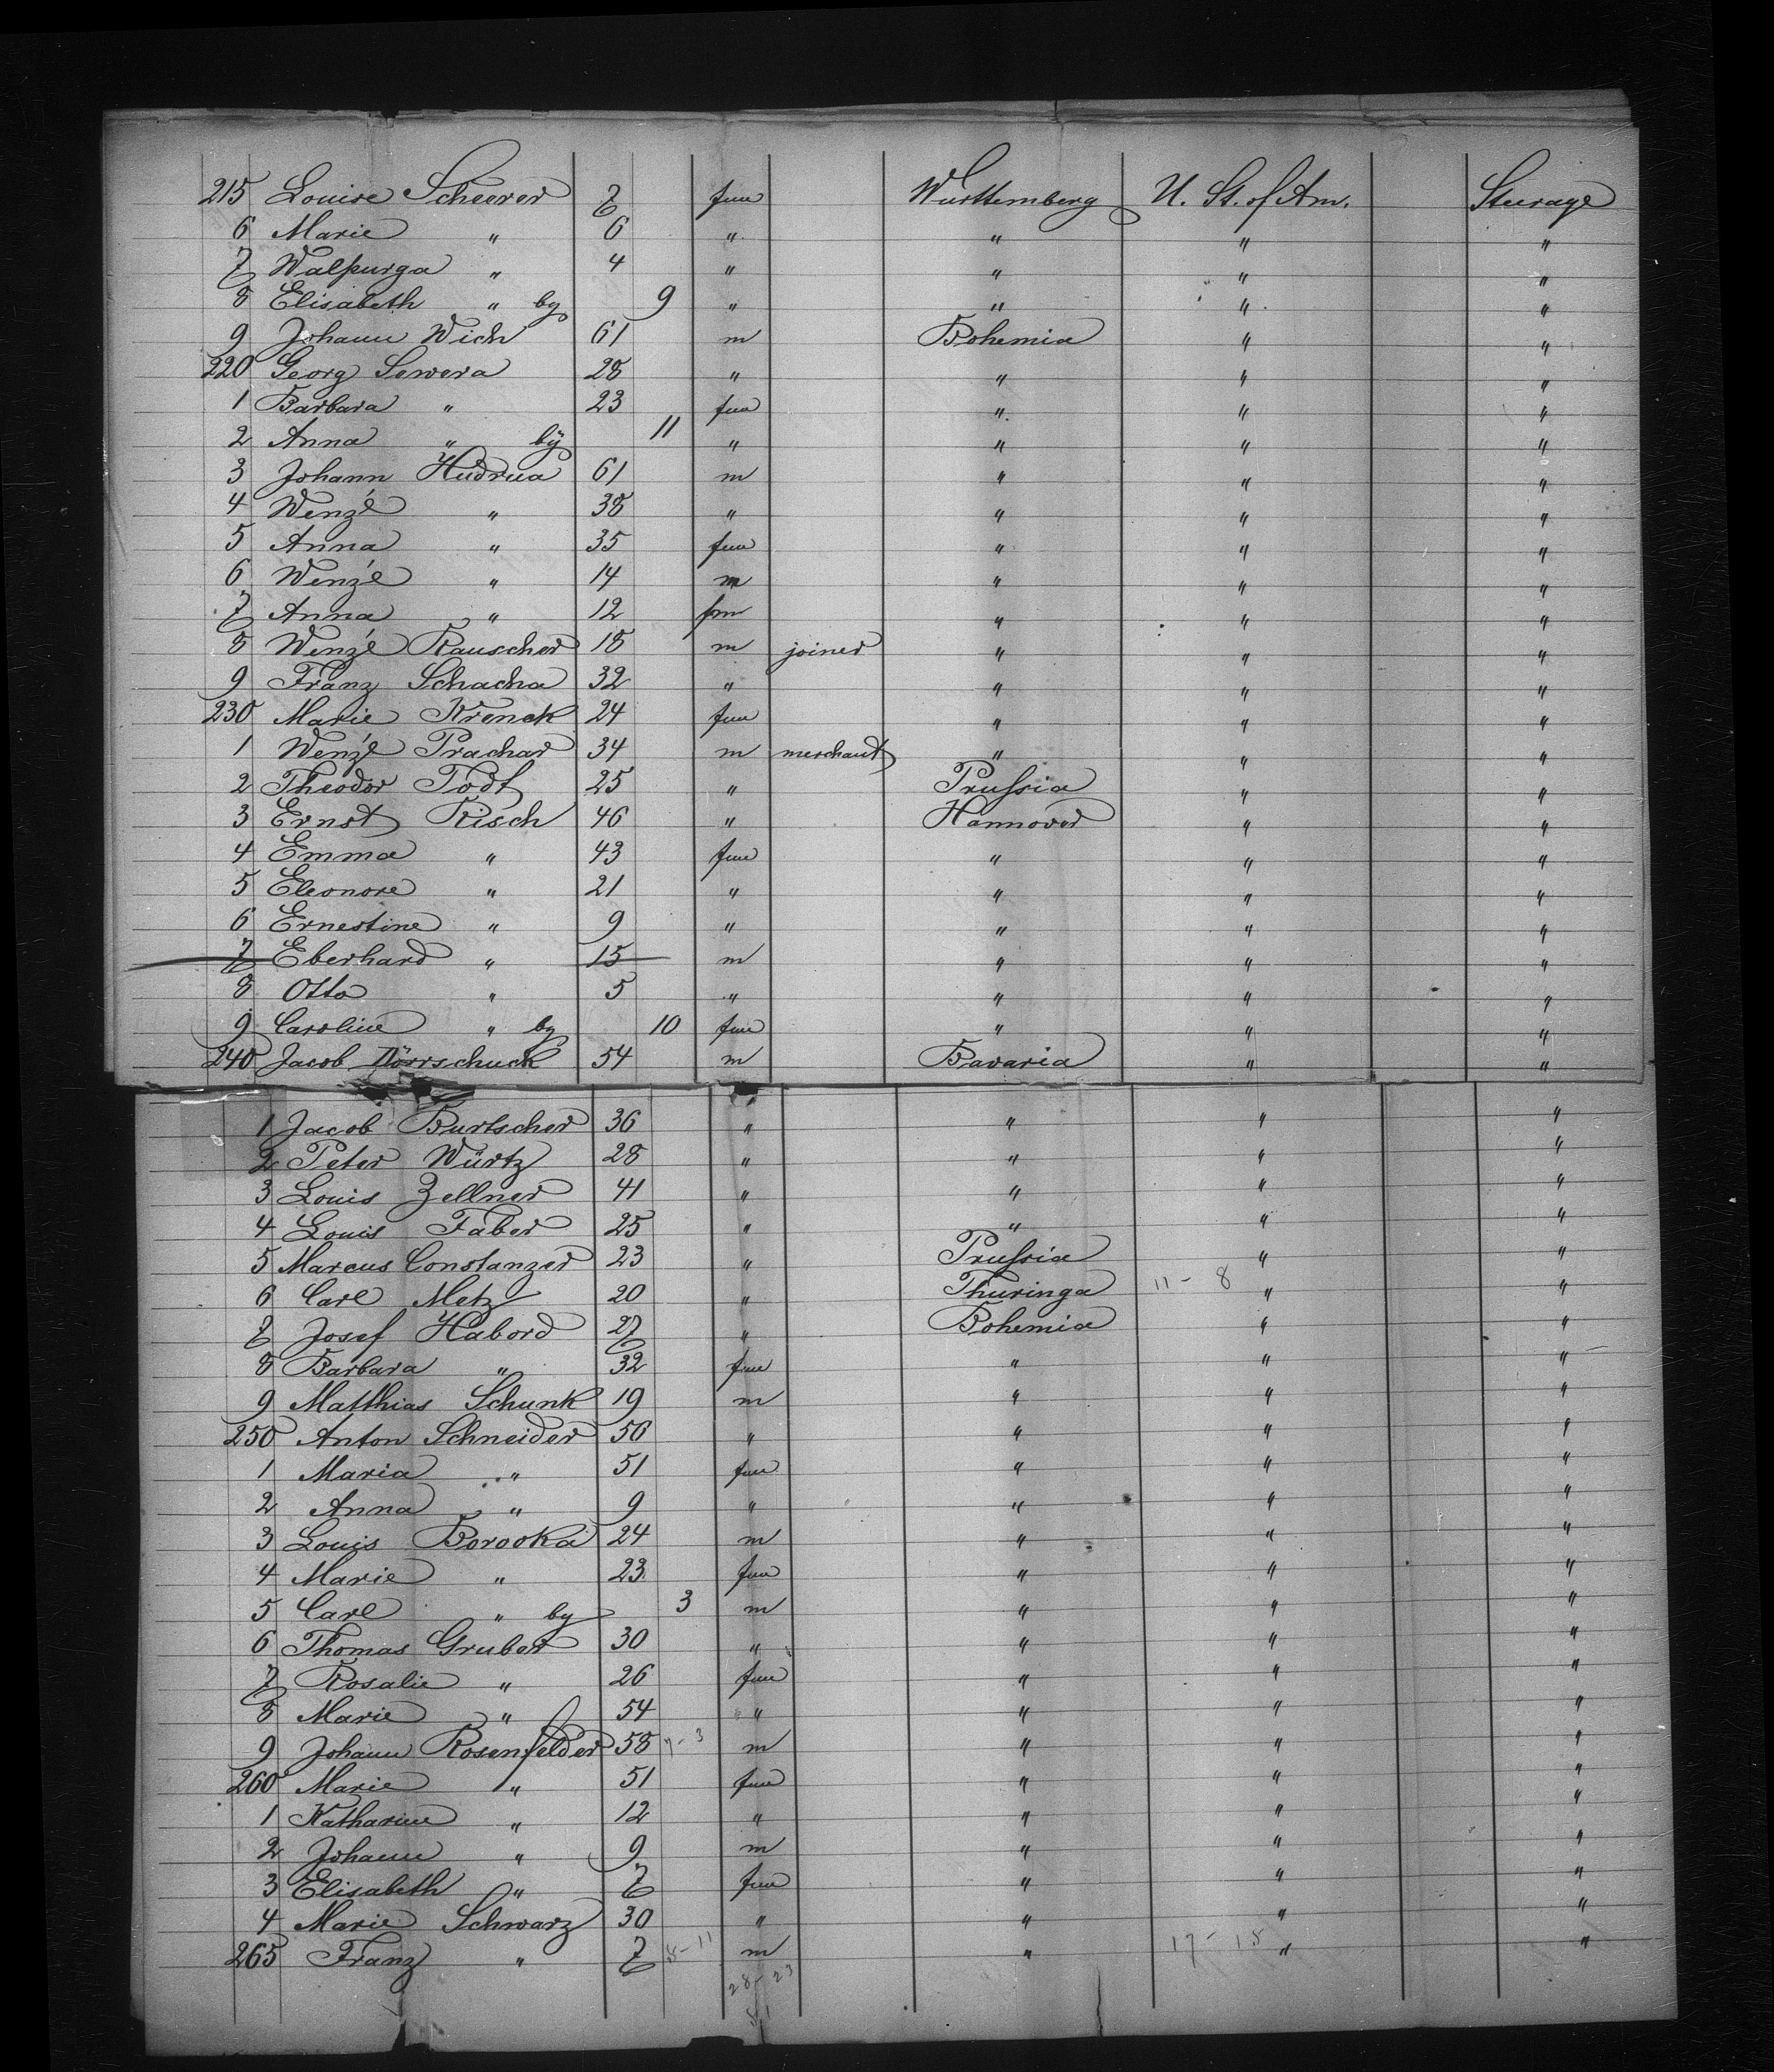 215 Louise Scheerer 7 fem Wurttemberg U. St. of Am. Steerage
6 Marie " 6 " " " "
7 Walpurga " 4 " " " "
8 Elisabeth " by 9 " " " "
9 Johann Wich 61 m Bohemia " "
220 Georg Sewera 28 " " " "
1 Barbara " 23 fem " " "
2 Anna " by 11 " " " "
3 Johann Hudrua 61 m " " "
4 Wenzl " 38 " " " "
5 Anna " 35 fem " " "
6 Wenzl " 14 m " " "
7 Anna " 12 fem " " "
8 Wenzl Rauscher 18 m joiner " " "
9 Franz Schacha 32 " " " "
230 Marie Krenek 24 fem " " "
1 Wenzl Prachar 34 m merchant " " "
2 Theodor Todt 25 " Prussia " "
3 Ernst Risch 46 " Hannover " "
4 Emma " 43 fem " " "
5 Eleonore " 21 " " " "
6 Ernestine " 9 " " " "
7 Eberhard " 15 m " " "
8 Otto " 5 " " " "
9 Caroline " by 10 fem " " "
240 Jacob Dörrschuck 54 m Bavaria " "
1 Jacob Burtscher 36 " " " "
2 Peter Würtz 28 " " " "
3 Louis Zellner 41 " " " "
4 Louis Faber 25 " " " "
5 Marcus Constanzer 23 " Prussia " "
6 Carl Metz 20 " Thuringa 11 - 8 " "
7 Josef Haberd 27 " Bohemia " "
8 Barbara " 32 fem " " "
9 Matthias Schunk 19 m " " "
250 Anton Schneider 56 " " " "
1 Maria " 51 fem " " "
2 Anna " 9 " " " "
3 Louis Borooka 24 m " " "
4 Marie " 23 fem " " "
5 Carl " by 3 m " " "
6 Thomas Gruber 30 " " " "
7 Rosalie " 26 fem " " "
8 Marie " 54 " " " "
9 Johann Rosenfelder 58 7 - 3 m " " "
260 Marie " 51 fem " " "
1 Katharine " 12 " " " "
2 Johann " 9 m " " "
3 Elisabeth " 7 fem " " "
4 Marie Schwarz 30 " " " "
265 Franz " 7 m " 17 - 15 " "
28 - 23
51